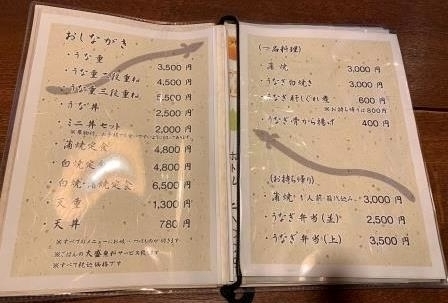 おしながき
・うな重 3,500 円
・うな重二段重ね 4,500 円
・うな重三段重ね 5,500 円
・うな丼 2,500 円
・ミニ丼セット 2,000 円
・蒲焼定食 4,800 円
・白焼定食 4,800 円
・白焼・蒲焼定食 6,500 円
・天重 1,300 円
・天丼 780 円
※ごはんの大盛無料サービス
※すべて税込価格です
(一品料理)
・蒲焼 3,000 円
・うなぎ白焼き 3,000 円
・うなぎ肝しぐれ煮 600 円
※お持ち帰りは800円
・うなぎ骨から揚げ 400 円
(お持ち帰り)
・蒲焼 1人前・箱代込み 3,000 円
・うなぎ弁当(並) 2,500 円
・うなぎ弁当(上) 3,500 円